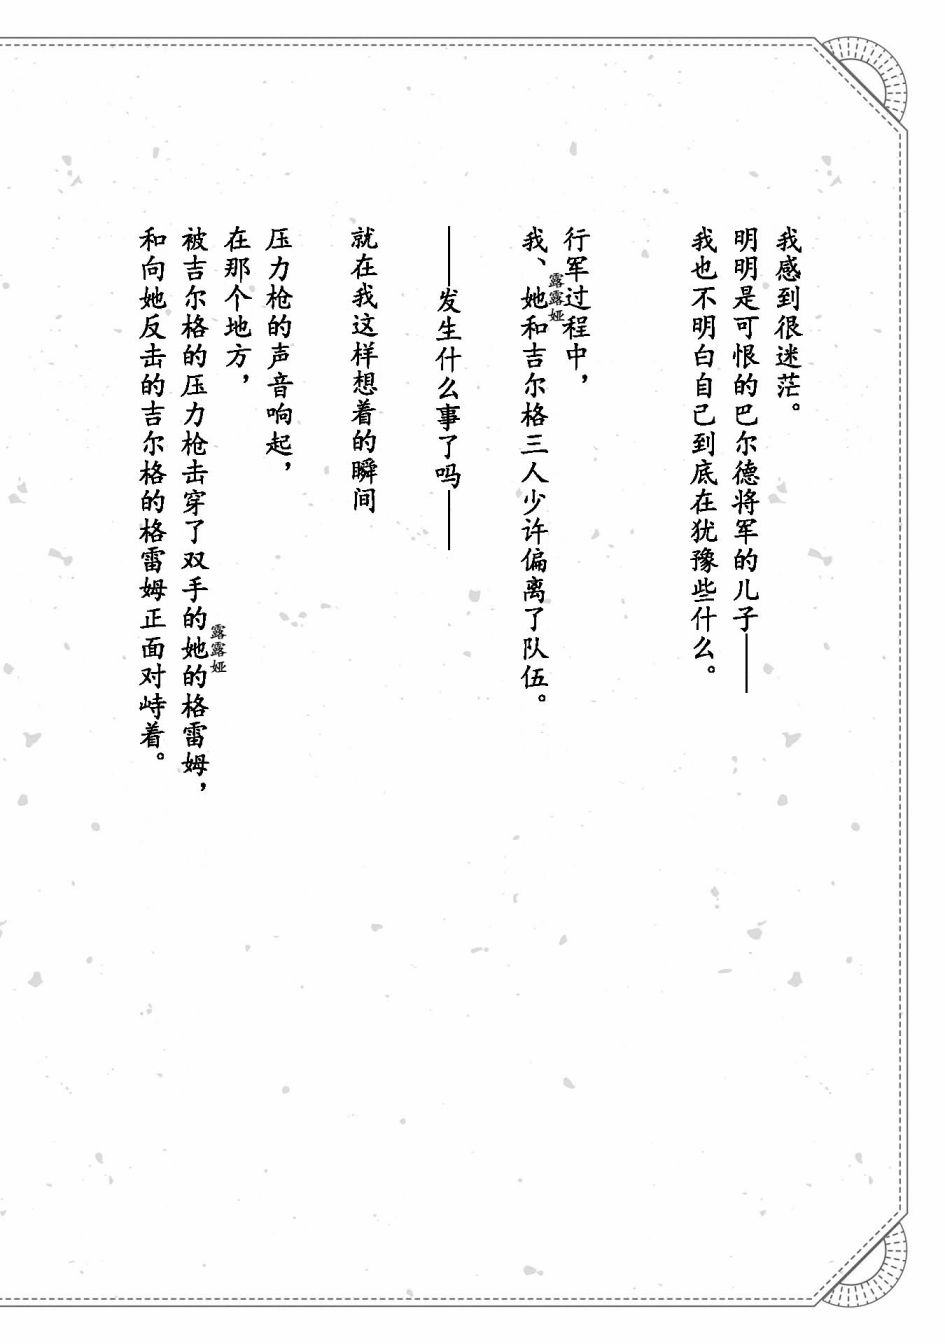 我感到很迷茫。
明明是可恨的巴尔德将军的儿子——
我也不明白自己到底在犹豫些什么。
行军过程中，
我、她和吉尔格三人少许偏离了队伍。
露露娅
——发生什么事了吗——
就在我这样想着的瞬间
压力枪的声音响起，
在那个地方，
被吉尔格的压力枪击穿了双手的她的格雷姆，
露露娅
和向她反击的吉尔格的格雷姆正面对峙着。